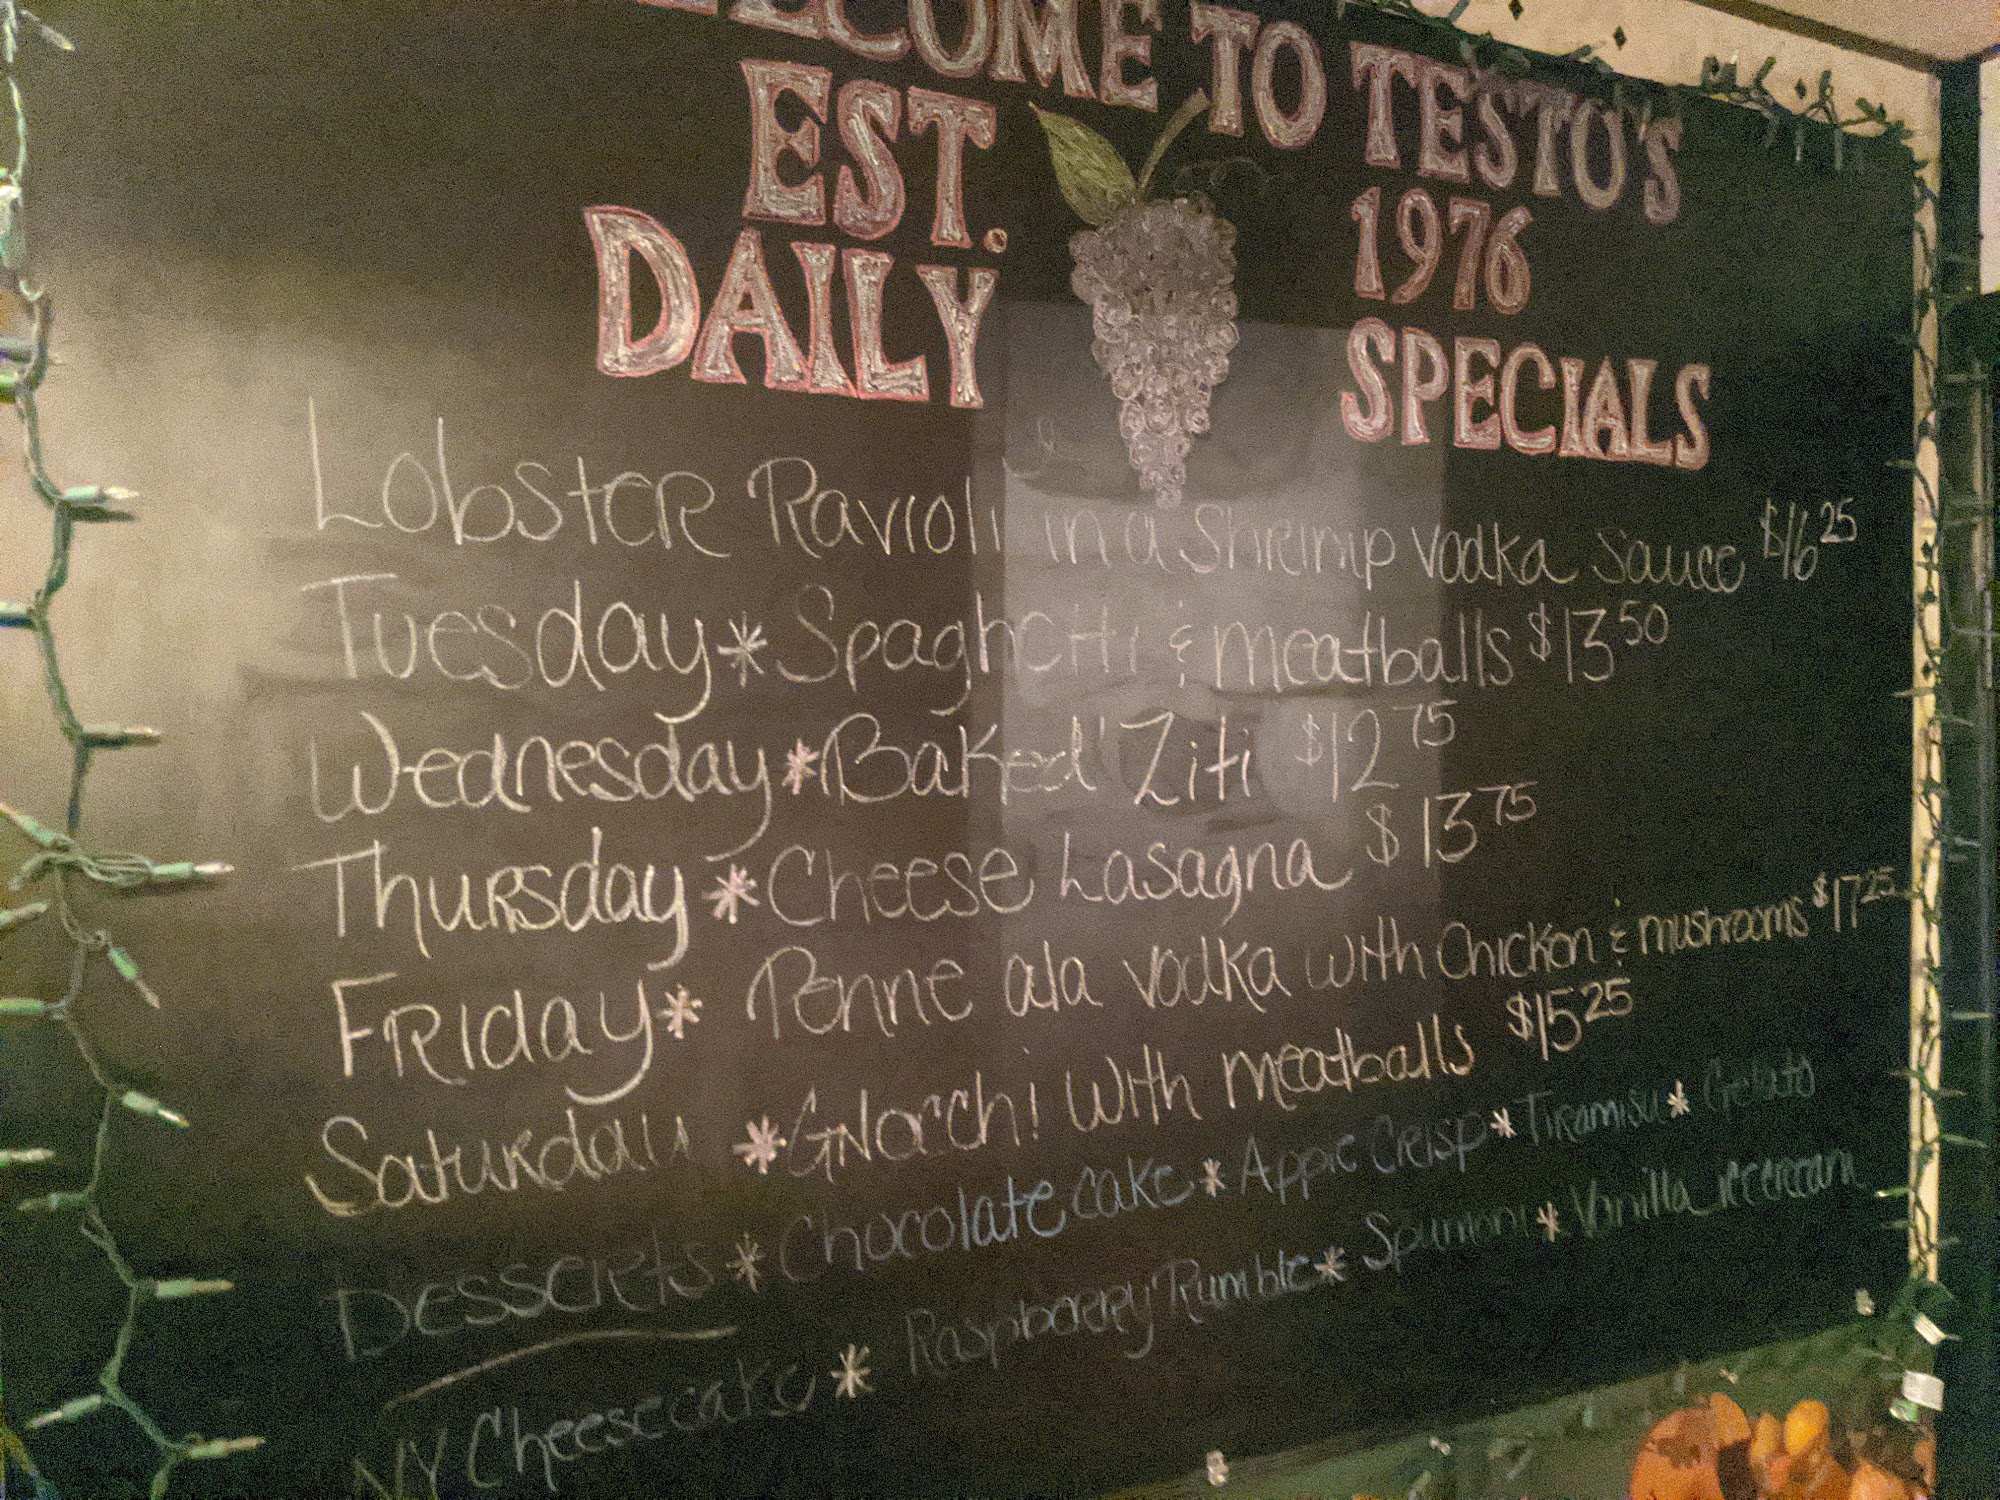 WELCOME TO TESTO'S
EST. 1976
DAILY SPECIALS
Lobster Ravioli in a shrimp vodka sauce $16 25
Tuesday * Spaghetti & meatballs $13 50
Wednesday * Baked Ziti $12 75
Thursday * Cheese Lasagna $13 75
Friday * Penne ala vodka with chicken & mushrooms $17 25
Saturday * Gnocchi with meatballs $15 25
Desserts * Chocolate cake * Apple Crisp * Tiramisu * Gelato
NY Cheesecake * Raspberry Rumble * Spumoni * Vanilla icecream